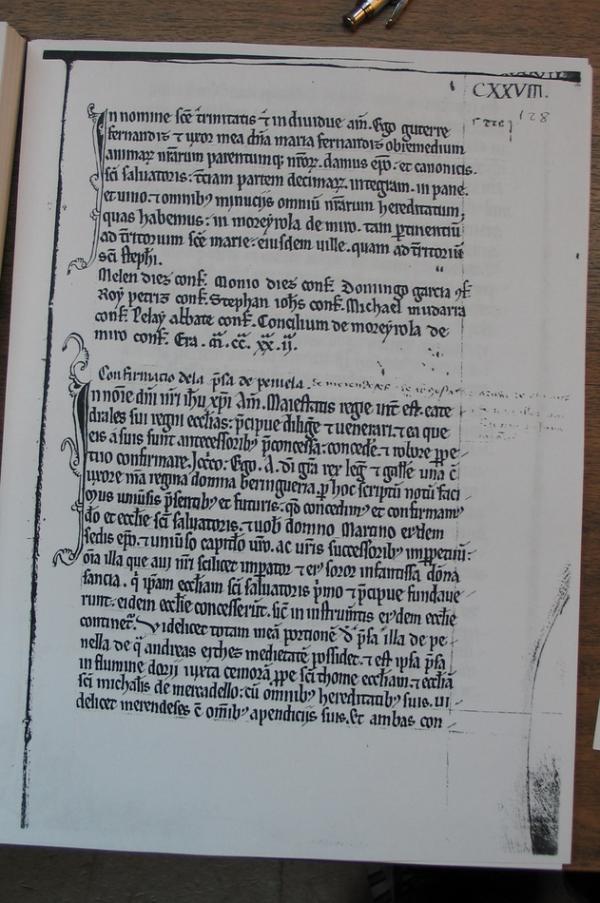 CXXVIII.
128
In nomine sc̄e trinitatis ⁊ in diuidue am̄. Ego guterre
fernandiz ⁊ uxor mea dn̄a maria fernandiz ob remedium
animarꝝ nr̄arum parentumqꝫ nr̄orꝝ. damus ep̄o ⁊ et canonicis.
sc̄i saluatoris: tciam partem decimarꝝ. integram. in pane.
et uino. ⁊ omnibꝫ minucijs omniū nr̄arum hereditatum,
quas habemus: in moreyrola de miro. tam ꝑtinentiū
ad t̄ritorium sc̄e marie. eiusdem uille. quam ad t̄ritoriū
sc̄i stephi.
Melen diez conf. Monio diez conf. Domingo garcia ꝯf.
Roy petriz conf. Stephan ioh̄s conf. Michael mudarra
conf. Pelay abbate conf. Concilium de moreyrola de
miro conf. Era. m̄. cc̄. xx̄. ij.
Confirmacio dela p̄sa de peniela.
In noīe dn̄i nr̄i ih̄u xp̄i Am̄. Maiestatis regie int̄ est. cate
drales sui regni ecclias: p̄cipue diligē ⁊ uenerari. ⁊ ea que
eis a suis sunt antecessoribꝫ p̄concessa: concedē. ⁊ robore ꝑpe
tuo confirmare. Ego. A. di gr̄a rex leḡ ⁊ gallē. una c̄
uxore m̄a regina domna beringueria. ꝑ hoc scriptū notū faci
mus uniūsis p̄sentibꝫ et futuris. qd̄ concedimꝰ et confirmamꝰ
dō et ecclie sc̄i saluatoris. ⁊ uob̄ domno Martino eiꝰdem
sedis ep̄o. ⁊ uniūso capitlo uro. ac ur̄is successoribꝫ inꝑpetuū:
om̄ia illa que aui nr̄i scilicet imꝑator ⁊ eiꝰ soror infantissa dōna
sancia. q̄ ip̄am eccliam sc̄i saluatoris p̄mo ⁊ p̄cipue fundaue
runt. eidem ecclie concesserūt. sic̄ in instrum̄tis eiꝰdem ecclie
continet̄. Videlicet totam meā portionē d̄ p̄sa illa de pe
nella de q̄ andreas medietatē possidet. ⁊ est ipsa p̄sa
in flumine dorij iuxta ꝑpe sc̄i thome eccliam. ⁊ eccliā
sc̄i michalis de mercadello: cū omnibꝫ hereditatibꝫ suis. ui
delicet merendeses c̄ om̄ibꝫ apendicijs suis. et ambas con